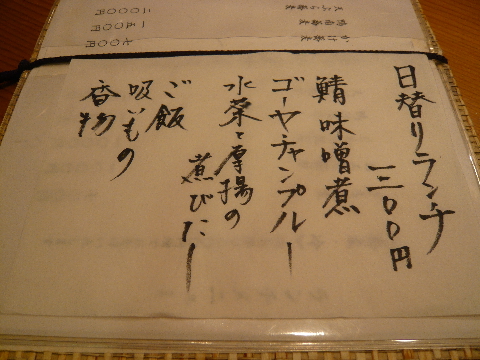 日替りランチ
一三〇〇円
鯖味噌煮
ゴーヤチャンプルー
水菜と厚揚の
煮びたし
ご飯
吸いもの
香物
かけ蕎麦 七〇〇円